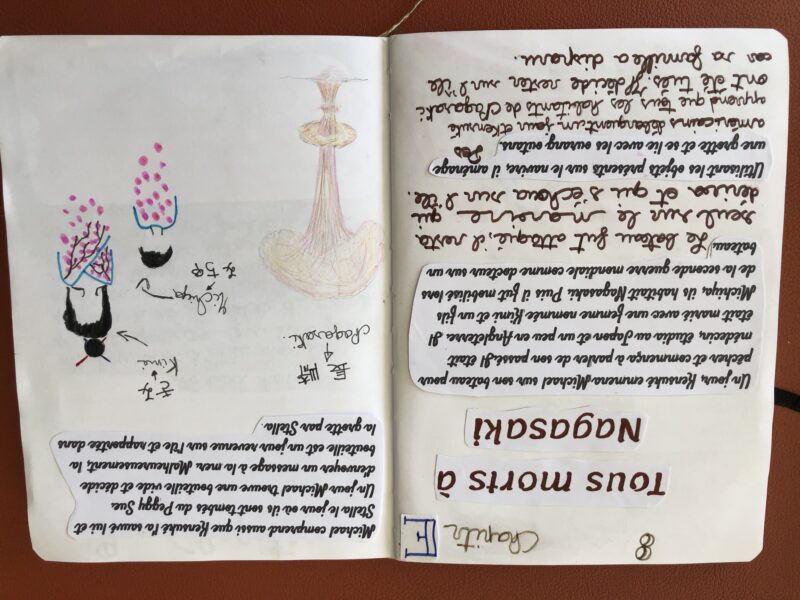 8 Chapitr
Tous morts à
Nagasaki
Un jour, Kensuké emmena Michael sur son bateau pour
pêcher et commença à parler de son passé. Il était
médecin, étudia au Japon et un peu en Angleterre. Il
était marié avec une femme nommée Kimi et un fils
Michiya, ils habitait Nagasaki. Puis il fut mobilisé lors
de la seconde guerre mondiale comme docteur sur un
bateau.
Le bateau fut attaqué, il resta
seul sur le navire qui
dériva et qui s'échoua sur l'île.
Utilisant les objets présents sur le navire, il aménage
une grotte et se lie avec les ourang outans. Des
américains débarquent un jour et Kensuké
apprend que tous les habitants de Nagasaki
ont été tués. Il décide rester sur l'île
car sa famille a disparu.
Michael comprend aussi que Kensuké l'a sauvé lui et
Stella le jour où ils sont tombés du Peggy Sue.
Un jour Michael trouve une bouteille vide et décide
d'envoyer un message à la mer. Malheureusement, la
bouteille est un jour revenue sur l'île et rapportée dans
la grotte par Stella.
長崎
Nagasaki
きみ
Kimi
みちや
Michiya